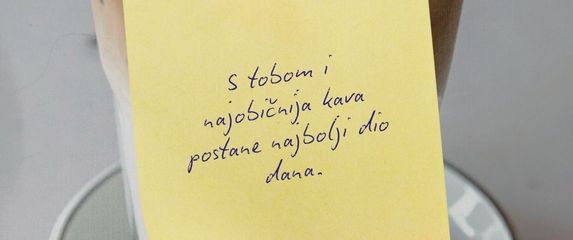 s tobom i
najobičnija kava
postane najbolji dio
dana.